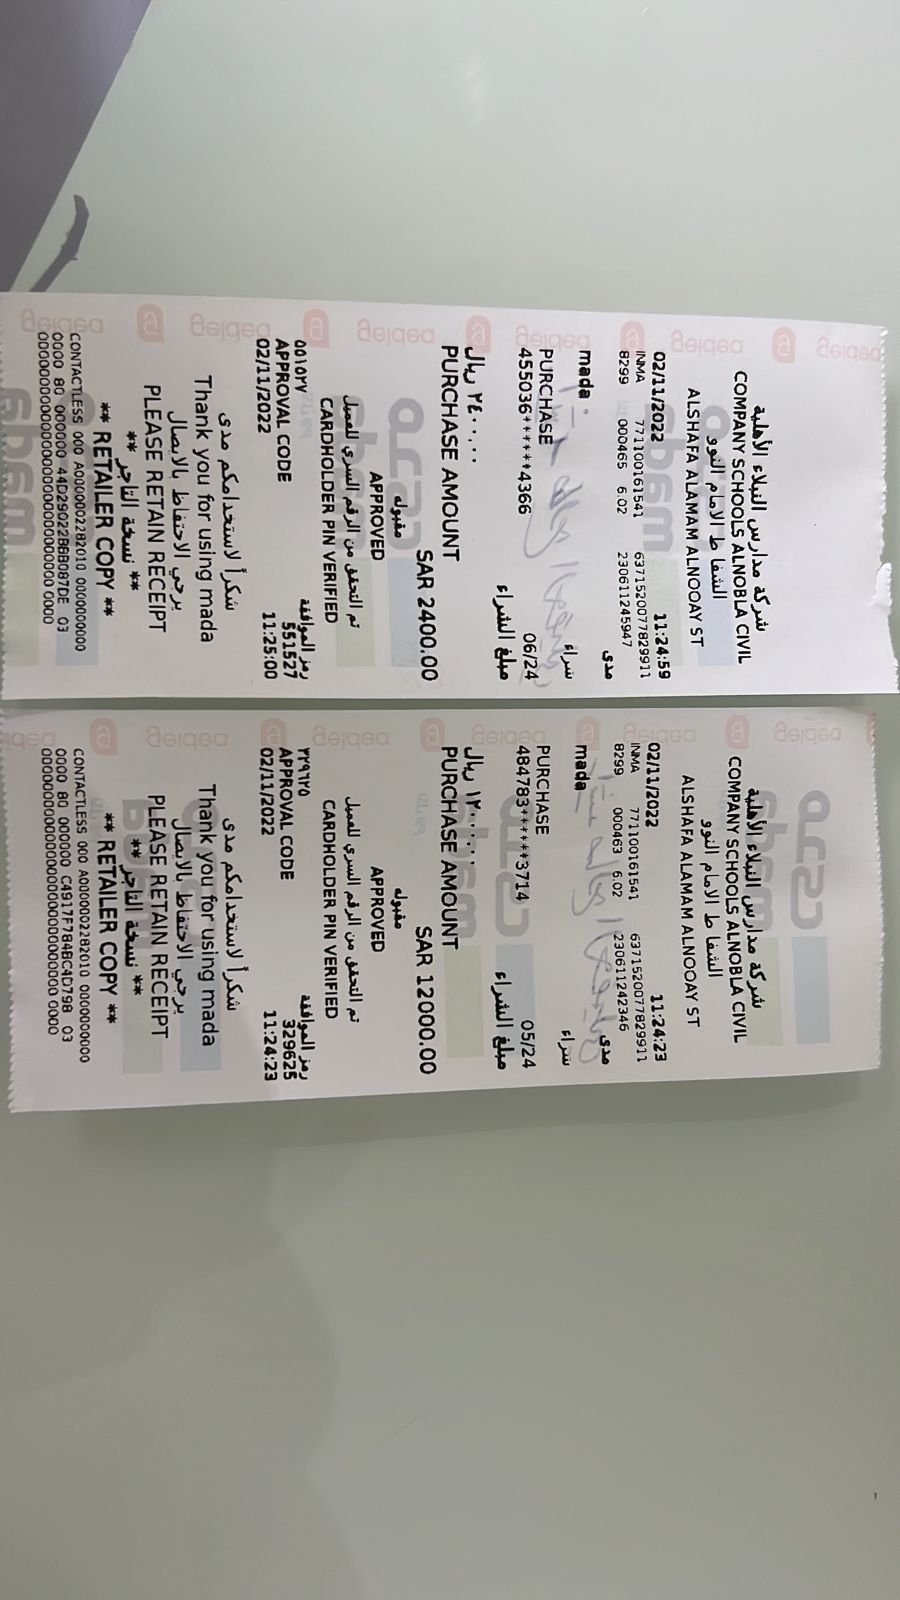 شركة مدارس النبلاء الأهلية
COMPANY SCHOOLS ALNOBLA CIVIL
الشفا ط الامام النوو
ALSHAFA ALAMAM ALNOOAY ST
02/11/2022 11:24:59
INMA 771100161541 6371520077829911
8299 000465 6.02 230611245947
mada مدى
PURCHASE شراء
455036******4366 06/24
مبلغ الشراء
٢٤٠٠.٠٠ ريال
PURCHASE AMOUNT
SAR 2400.00
مقبوله
APPROVED
تم التحقق من الرقم السري للعميل
CARDHOLDER PIN VERIFIED
رمز الموافقة ٥٥١٥٢٧
APPROVAL CODE 551527
02/11/2022 11:25:00
شكراً لاستخدامكم مدى
Thank you for using mada
يرجى الاحتفاظ بالايصال
PLEASE RETAIN RECEIPT
** نسخة التاجر **
** RETAILER COPY **
شركة مدارس النبلاء الأهلية
COMPANY SCHOOLS ALNOBLA CIVIL
الشفا ط الامام النوو
ALSHAFA ALAMAM ALNOOAY ST
02/11/2022 11:24:23
INMA 771100161541 6371520077829911
8299 000463 6.02 230611242346
mada مدى
PURCHASE شراء
484783******3714 05/24
مبلغ الشراء
١٢٠٠٠.٠٠ ريال
PURCHASE AMOUNT
SAR 12000.00
مقبوله
APPROVED
تم التحقق من الرقم السري للعميل
CARDHOLDER PIN VERIFIED
رمز الموافقة ٣٢٩٦٢٥
APPROVAL CODE 329625
02/11/2022 11:24:23
شكراً لاستخدامكم مدى
Thank you for using mada
يرجى الاحتفاظ بالايصال
PLEASE RETAIN RECEIPT
** نسخة التاجر **
** RETAILER COPY **